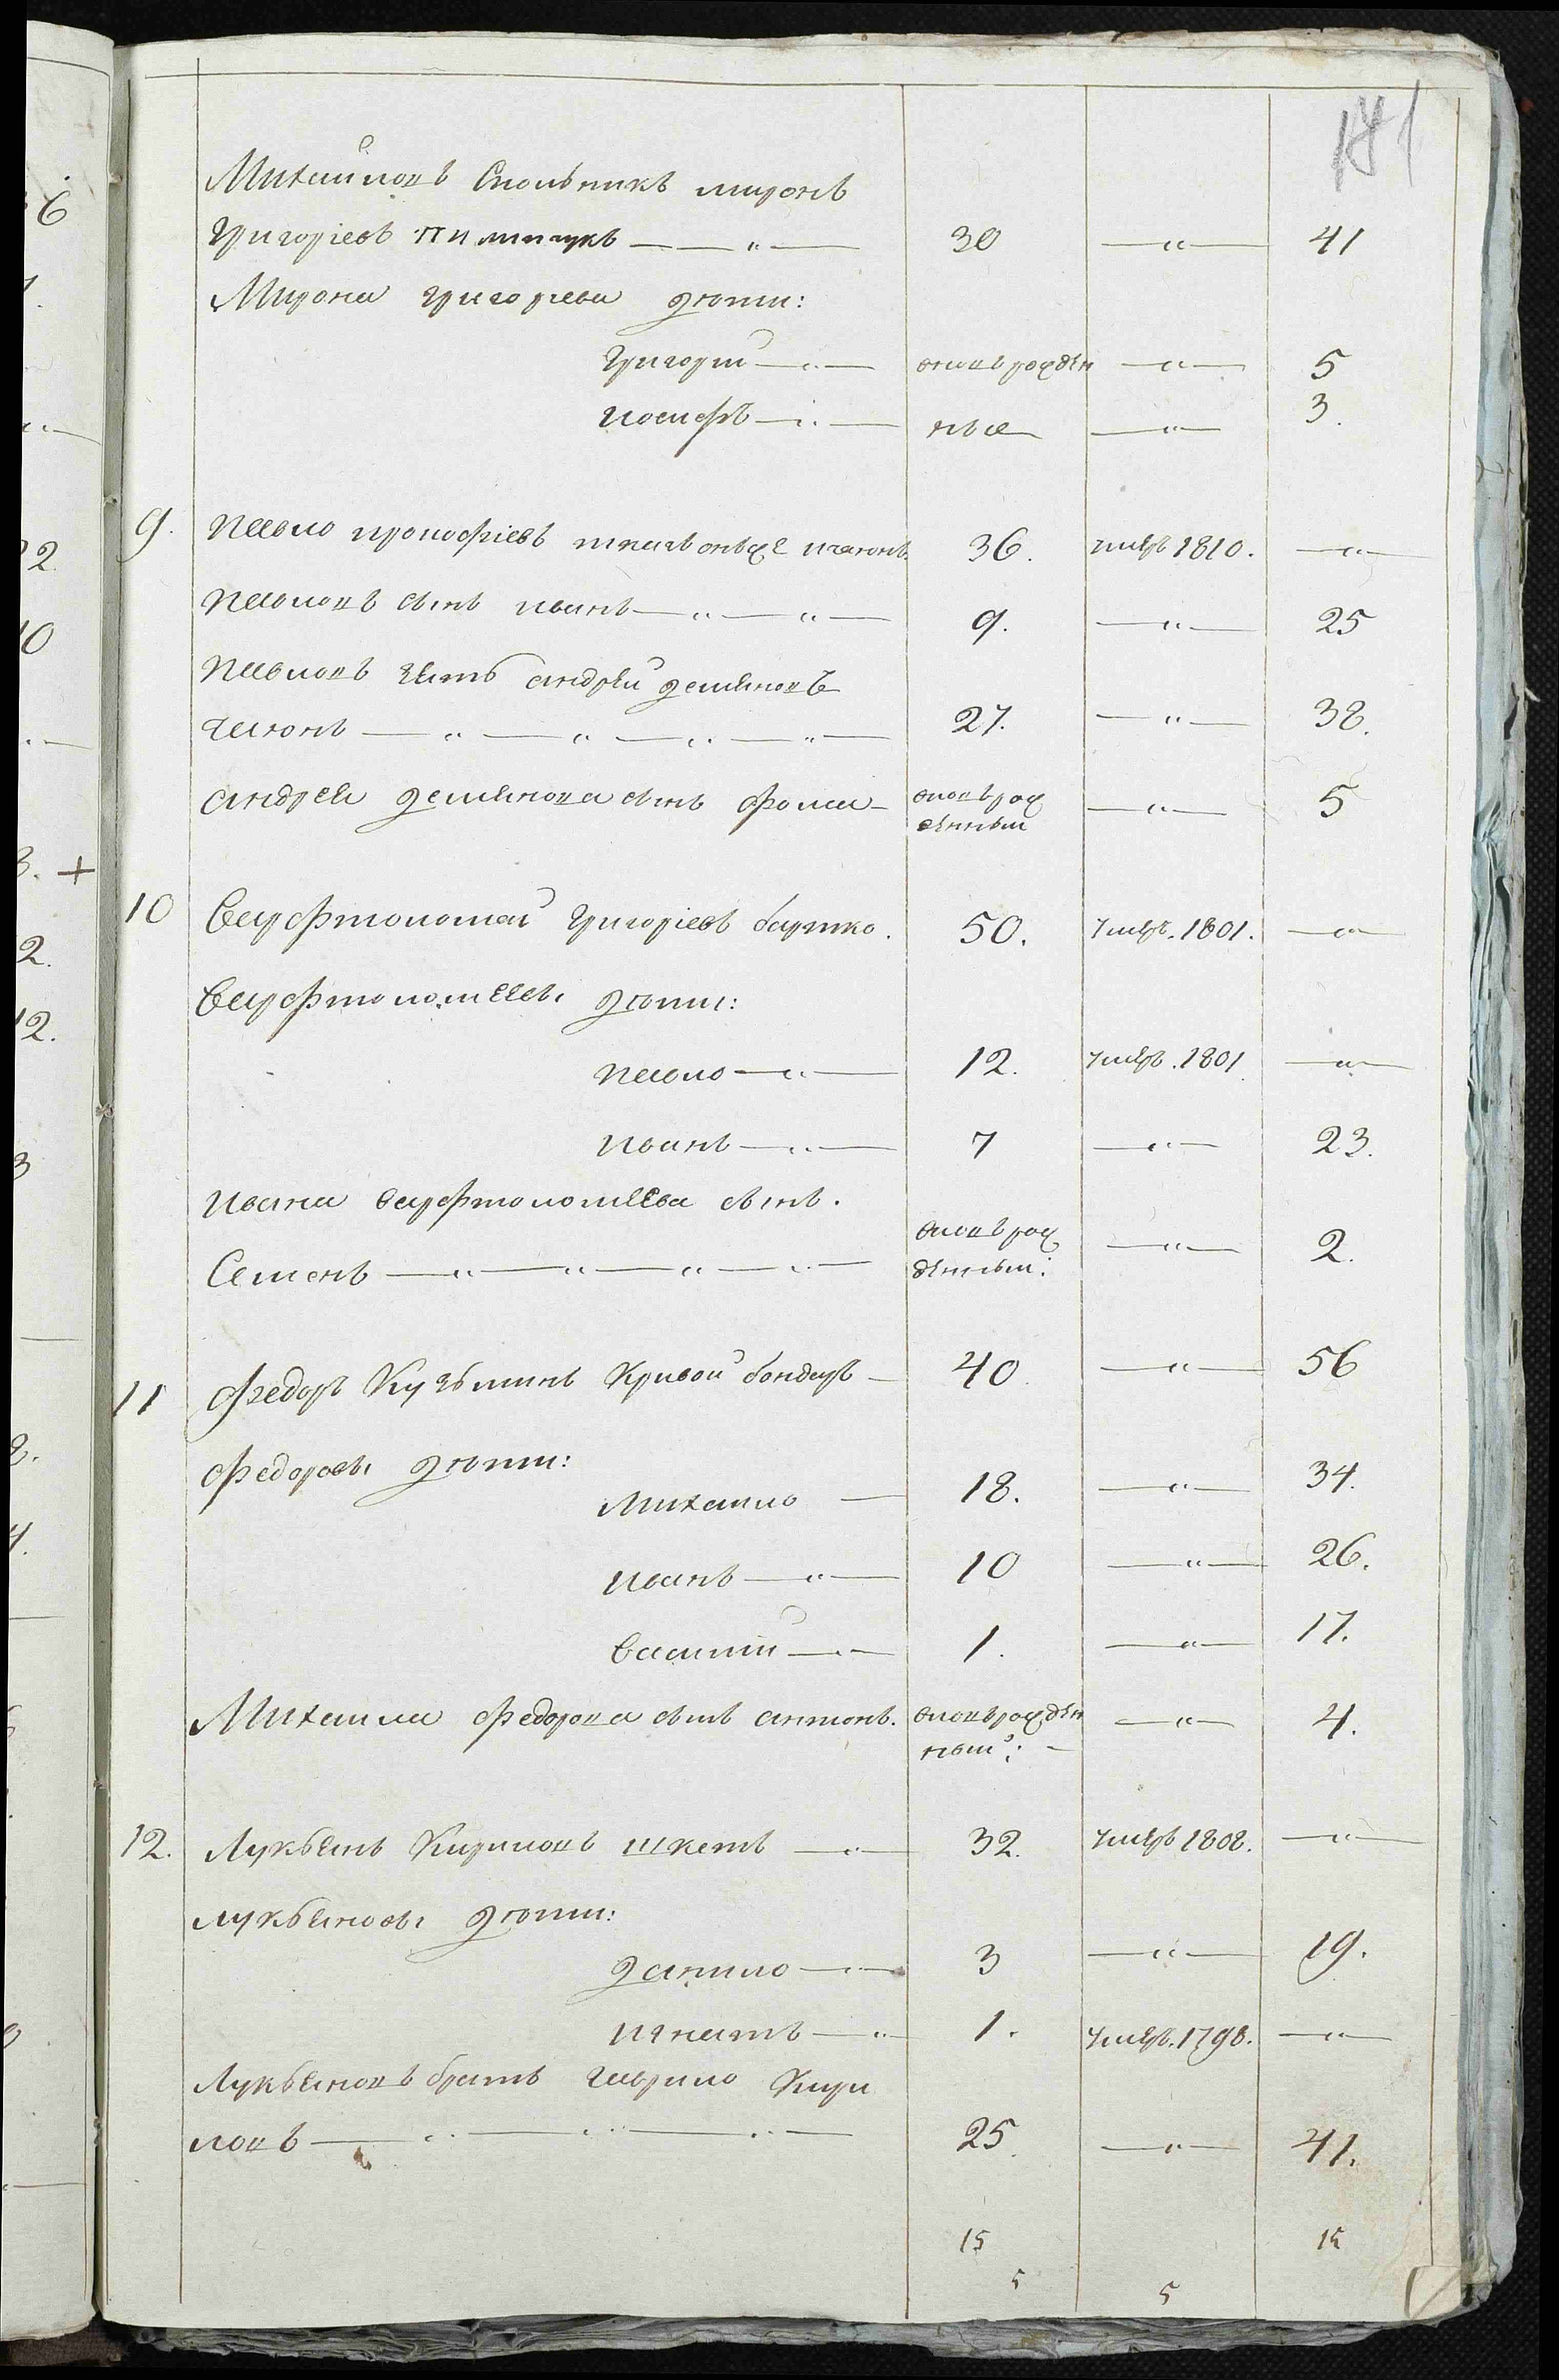 171
Михайловъ Спольникъ миронъ
Григоріевъ пилипчукъ — „ — 30 — „ — 41
Мирона григорьева дѣти:
Григорий — „ — вновь рожден — „ — 5
иосифъ — „ — ные — „ — 3.
9. павло прокофіевъ 36. умеръ 1810. — „ —
павловъ сынъ иванъ — „ — „ — 9. — „ — 25
павловъ зять андрей демяновъ
— „ — „ — „ — „ — 27. — „ — 38.
андрея демянова сынъ фома — вновь рож — „ — 5
денный
10 Варфтоломей Григоріевъ бартко. 50. умеръ. 1801. — „ —
Варфтоломеевы дѣти:
павло — „ — 12. умеръ. 1801 — „ —
иванъ — „ — 7 — „ — 23.
ивана варфтоломеева сынъ.
вновь рож
Семенъ — „ — „ — „ — „ — денный: — „ — 2.
11 федоръ Кузьминъ Кривой бондаръ — 40 — „ — 56
федоровы дѣти:
Михаило — 18. — „ — 34.
иванъ — „ — 10 — „ — 26.
василий — „ — 1. — „ — 17.
Михаила федорова сынъ антонъ. вновь рожден — „ — 4.
ный: —
12. Лукьянъ Кириловъ шкетъ — „ — 32. умеръ 1808. — „ —
лукьяновы дѣти:
данило — „ — 3 — „ — 19.
игнатъ — „ — 1. умеръ. 1798. — „ —
Лукьяновъ братъ гаврило Кири
ловъ — „ — „ — „ — 25 — „ — 41.
15 15
5 5